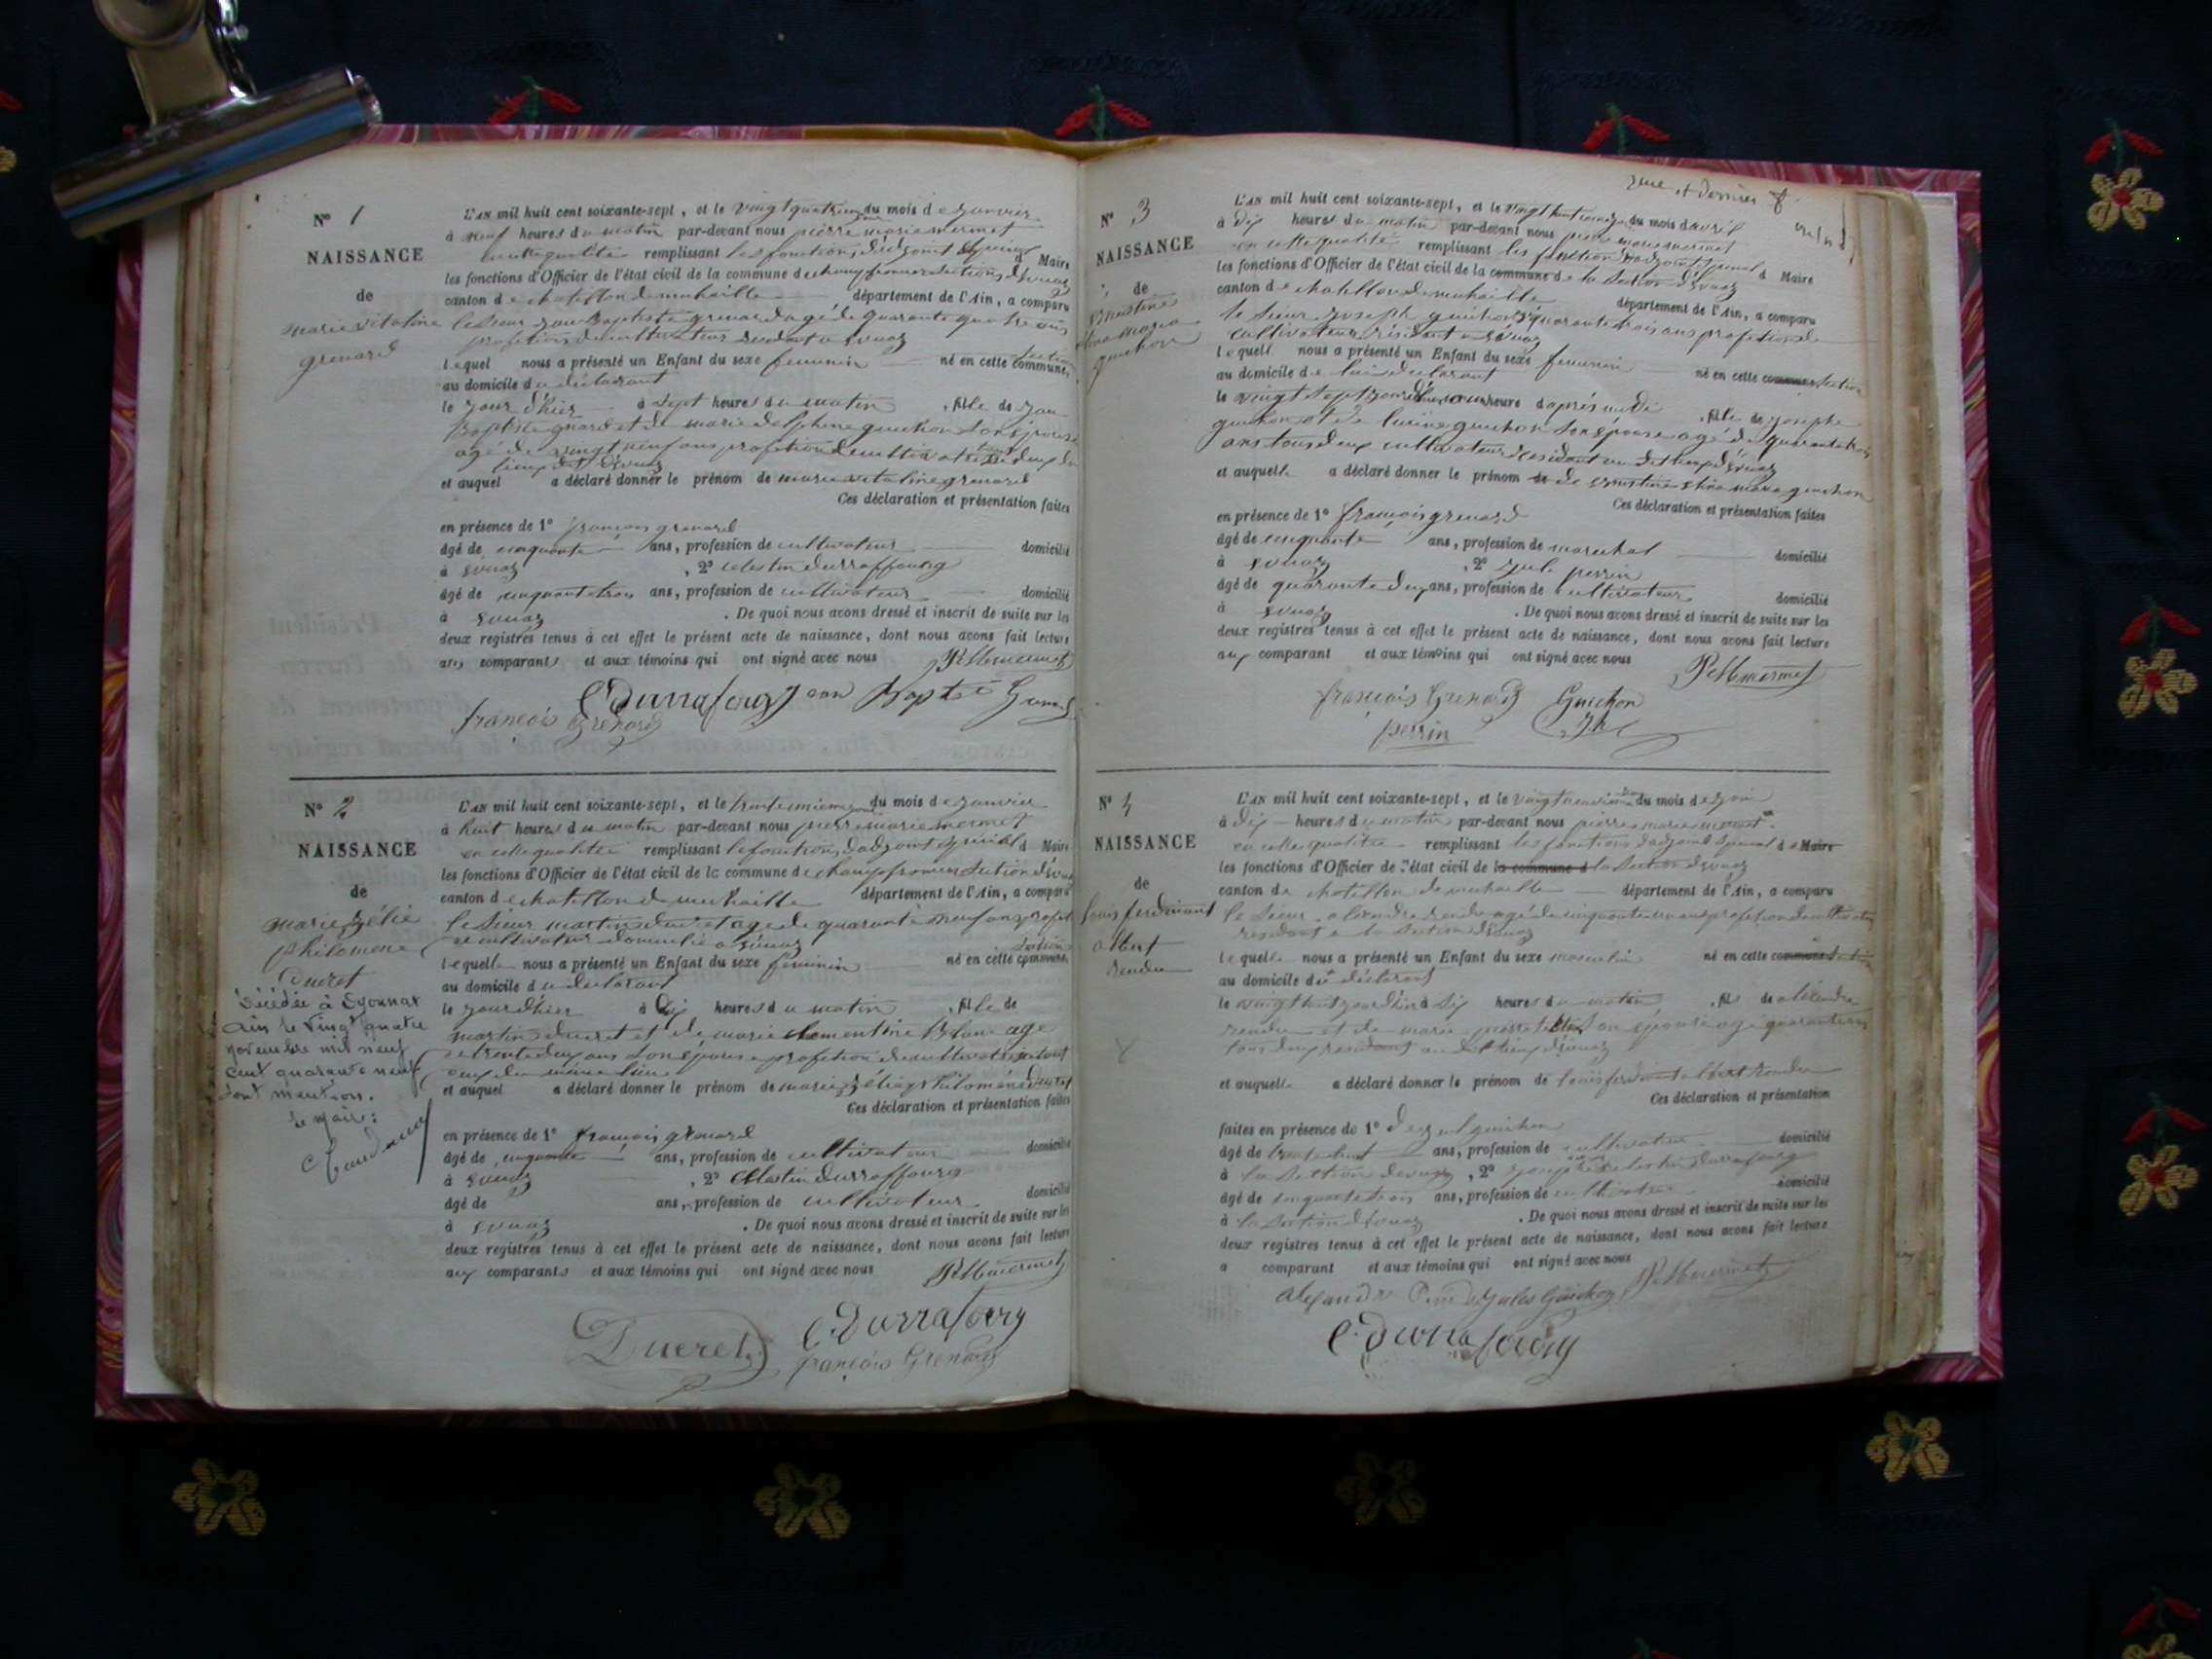 N° 1
NAISSANCE
de
marie vitaline
grenard
L'AN mil huit cent soixante-sept, et le vingt quatrieme jour du mois de janvier
à neuf heures du matin par-devant nous pierre marie mermet
en cette qualité remplissant les fonctions d'adjoint spécial d Maire
les fonctions d'Officier de l'état civil de la commune de champfromier section d'évuaz
canton de chatillon de michaille département de l'Ain, a comparu
le sieur jean Baptiste grenard agé de quarante quatre ans
profetion de cultivateur residant a évuaz
lequel nous a présenté un Enfant du sexe feminin né en cette commune, section
au domicile du déclarant
le jour d'hier à sept heures du matin, fille de jean
Baptiste grenard et de marie delphine guichon son épouse
agé de vingt neuf ans profetion de cultivatrice tous deux du
lieux d'évuaz
et auquel a déclaré donner le prénom de marie vitaline grenard
Ces déclaration et présentation faites
en présence de 1° françois grenard
âgé de cinquante ans, profession de cultivateur domicilié
à évuaz, 2° celestin durraffourg
âgé de cinquante trois ans, profession de cultivateur domicilié
à évuaz. De quoi nous avons dressé et inscrit de suite sur les
deux registres tenus à cet effet le présent acte de naissance, dont nous avons fait lecture
aux comparants et aux témoins qui ont signé avec nous PM mermet
C Durrafourg Jean Baptiste Grenard
françois Grenard
N° 2
NAISSANCE
de
marie zélie
philomene
Ducret
Décédée à Oyonnax
Ain le vingt quatre
novembre mil neuf
cent quarante neuf
dont mention.
Le Maire:
L'AN mil huit cent soixante-sept, et le trente unieme jour du mois de janvier
à huit heures du matin par-devant nous pierre marie mermet
en cette qualité remplissant les fonctions d'adjoint spécial d Maire
les fonctions d'Officier de l'état civil de la commune de champfromier section d'évuaz
canton de chatillon de michaille département de l'Ain, a comparu
le sieur martin ducret age de quarante neuf ans profetion
de cultivateur domicilié a évuaz
lequel nous a présenté un Enfant du sexe féminin né en cette commune, section
au domicile du declarant
le jour d'hier à dix heures du matin, fille de
martin ducret et de marie clementine Blanc age
de trente deux ans son épouse profetion de cultivatrice tout
deux du même lieu
et auquel a déclaré donner le prénom de marie zélie philoméne ducret
Ces déclaration et présentation faites
en présence de 1° françois grenard
âgé de cinquante ans, profession de cultivateur domicilié
à évuaz, 2° Celestin durraffourg
âgé de ans, profession de cultivateur domicilié
à évuaz. De quoi nous avons dressé et inscrit de suite sur les
deux registres tenus à cet effet le présent acte de naissance, dont nous avons fait lecture
aux comparants et aux témoins qui ont signé avec nous PM mermet
Ducret C. Durrafourg
françois Grenard
2me et dernier f.
N° 3
NAISSANCE
de
ernestine
marie
guichon
L'AN mil huit cent soixante-sept, et le vingt huitieme jour du mois d'avril
à dix heures du matin par-devant nous pierre marie mermet
en cette qualité remplissant les fonction d'adjoint spécial d Maire
les fonctions d'Officier de l'état civil de la commune de la section d'évuaz
canton de chatillon de michaille département de l'Ain, a comparu
le sieur joseph guichon quarante trois ans profetion de
cultivateur résidant a évuaz
lequel nous a présenté un Enfant du sexe feminin né en cette commune section
au domicile de lui declarant
le vingt sept jour d'hier a une heure d'après midi, fille de josephe
guichon et de guichon son épouse agé de quarante trois
ans tous deux cultivateur residant au dit lieux d'évuaz
et auquelle a déclaré donner le prénom de de ernestine marie guichon
Ces déclaration et présentation faites
en présence de 1° françois grenard
âgé de cinquante ans, profession de marechal domicilié
à évuaz, 2° jule perrin
âgé de quarante deux ans, profession de cultivateur domicilié
à évuaz. De quoi nous avons dressé et inscrit de suite sur les
deux registres tenus à cet effet le présent acte de naissance, dont nous avons fait lecture
aux comparant et aux témoins qui ont signé avec nous PM mermet
françois Grenard Guichon
perrin Jh
N° 4
NAISSANCE
de
louis ferdinant
albert
rendu
L'AN mil huit cent soixante-sept, et le vingt neuvieme jour du mois de juin
à dix heures du matin par-devant nous pierre marie mermet
en cette qualitée remplissant les fonctions d'adjoint spécial d Maire
les fonctions d'Officier de l'état civil de la commune d la section d'évuaz
canton de chatillon de michaille département de l'Ain, a comparu
le sieur alexandre rendu agé de cinquante un ans profetion de cultivateur
residant a la section d'évuaz
lequelle nous a présenté un Enfant du sexe masculin né en cette commune section
au domicile du déclarant
le vingt huit jour d'hier à dix heures du matin, fils de alexandre
rendu et de marie son épouse age quarante
tous deux residant au dit lieux d'évuaz
et auquelle a déclaré donner le prénom de louis ferdinant albert rendu
Ces déclaration et présentation
faites en présence de 1° guichon
âgé de ans, profession de cultivateur domicilié
à la section d'évuaz, 2° celestin durrafourg
âgé de cinquante trois ans, profession de cultivateur domicilié
à la section d'évuaz. De quoi nous avons dressé et inscrit de suite sur les
deux registres tenus à cet effet le présent acte de naissance, dont nous avons fait lecture
a comparant et aux témoins qui ont signé avec nous
alexandre Rendu Jules Guichon PM mermet
C. Durrafourg